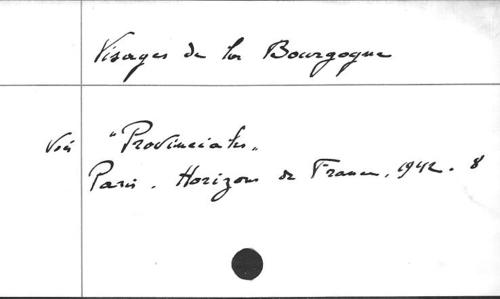 Visages de la Bourgogne
Voir "Provinciales"
Paris. Horizons de France, 1942. 8